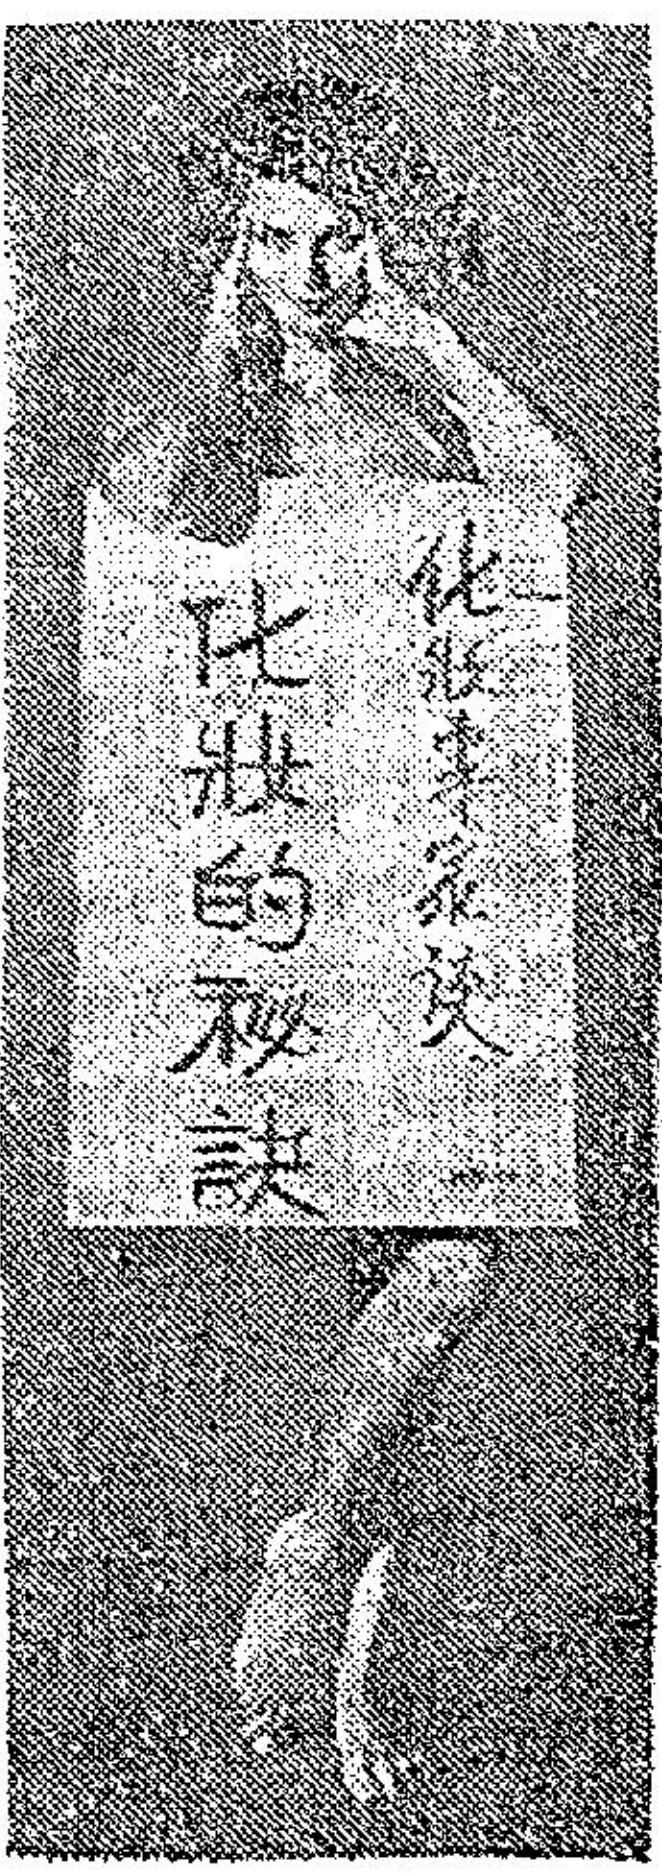 化妝專家談
化妝的秘訣